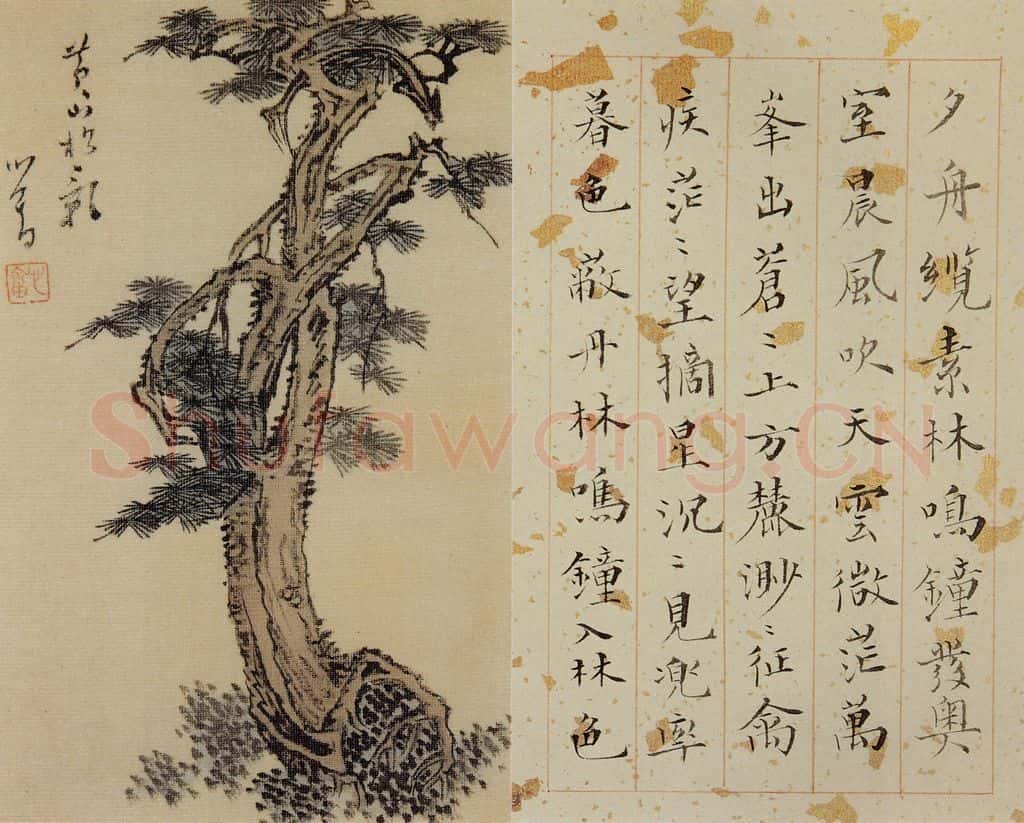 夕舟纜素林鳴鐘發奥
室晨風吹天雲微茫萬
峯出蒼〻上方麓渺〻征禽
疾茫〻望摘星況〻見兜率
暮色蔽丹林鳴鐘入林色
黄山松
心畬
心畬
Shufawang.CN